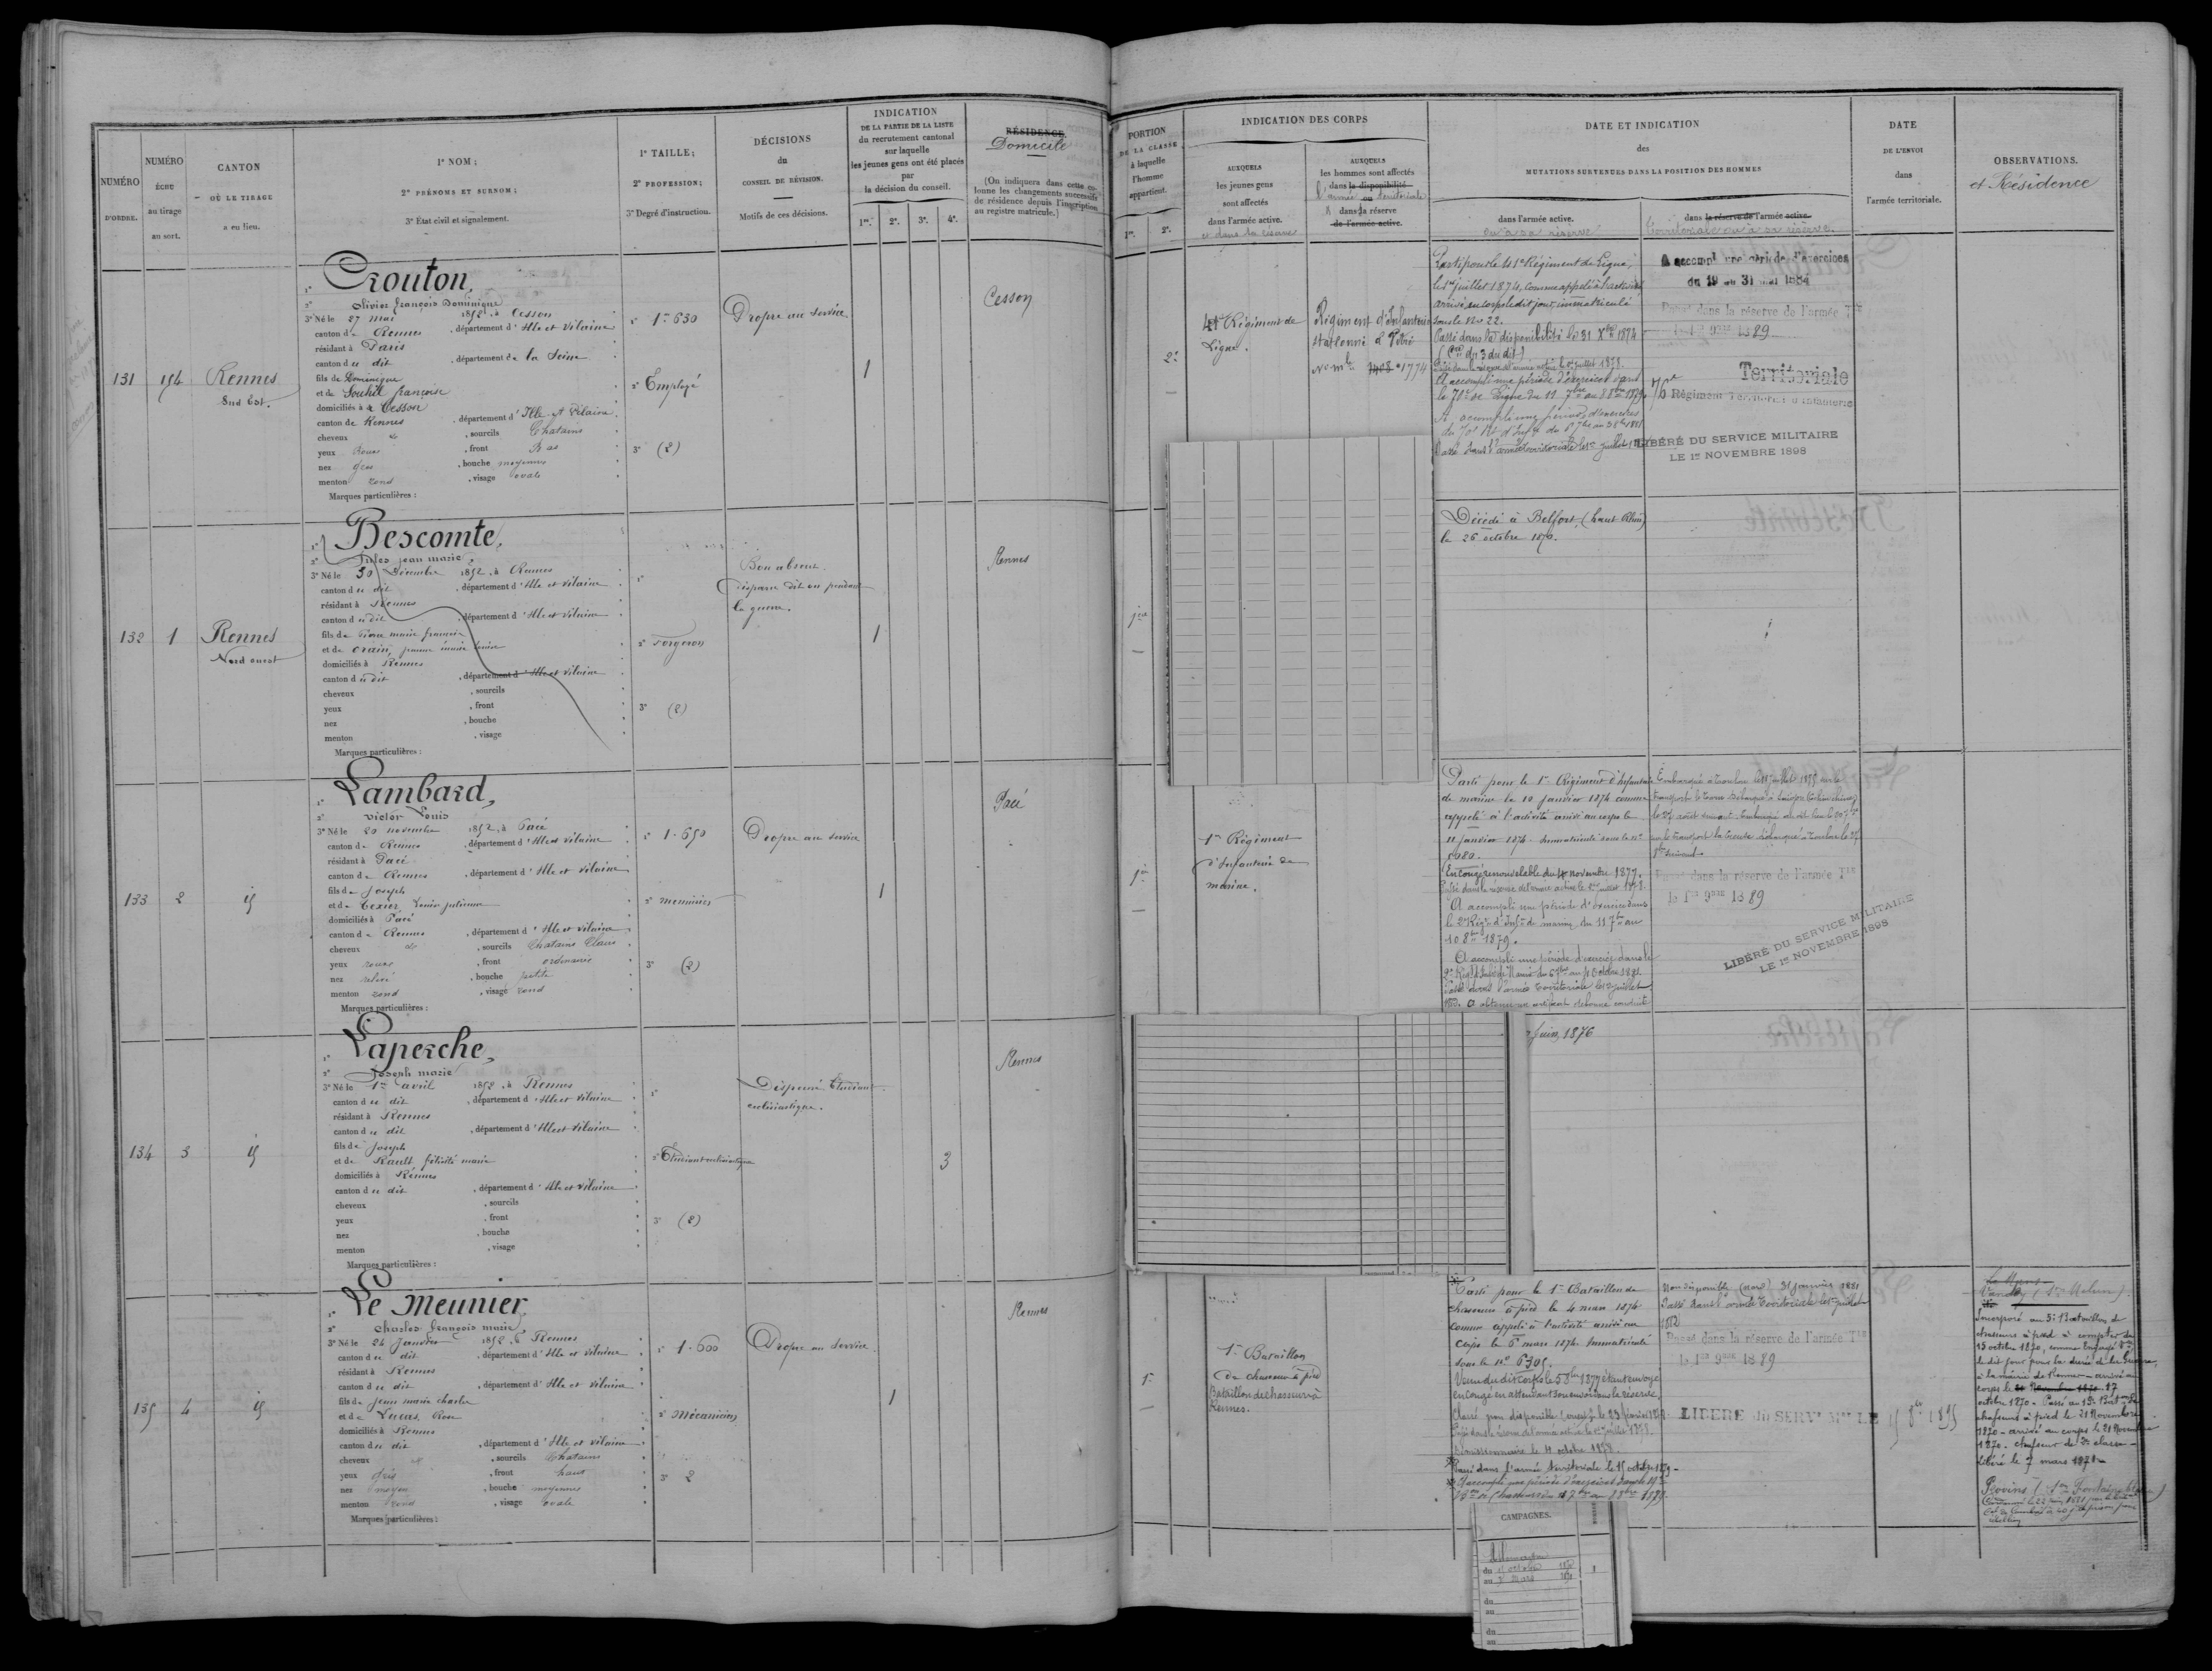 NUMÉRO
D'ORDRE.
NUMÉRO
ÉCHU
au tirage
au sort.
CANTON
OÙ LE TIRAGE
a eu lieu.
1° NOM;
2° PRÉNOMS ET SURNOM;
3° État civil et signalement.
1° TAILLE;
2° PROFESSION;
3° Degré d'instruction.
DÉCISIONS
du
CONSEIL DE RÉVISION.
Motifs de ces décisions.
INDICATION
DE LA PARTIE DE LA LISTE
du recrutement cantonal
sur laquelle
les jeunes gens ont été placés
par
la décision du conseil.
1re. 2e. 3e. 4e.
RÉSIDENCE.
Domicile
(On indiquera dans cette colonne
les changements successifs
de résidence depuis l'inscription
au registre matricule.)
PORTION
DE LA CLASSE
à laquelle
l'homme
appartient.
1re. 2e.
INDICATION DES CORPS
AUXQUELS
les jeunes gens
sont affectés
dans l'armée active.
et dans la réserve
AUXQUELS
les hommes sont affectés
dans la disponibilité
l'armée territoriale
dans la réserve
de l'armée active.
DATE ET INDICATION
des
MUTATIONS SURVENUES DANS LA POSITION DES HOMMES
dans l'armée active.
ou à sa réserve
dans la réserve de l'armée active.
territoriale ou à sa réserve.
DATE
DE L'ENVOI
dans
l'armée territoriale.
OBSERVATIONS.
et Résidence
131 154 Rennes
Sud Est.
1° Crouton,
2° Olivier françois Dominique
3° Né le 27 mai 1852, à Cesson
canton de Rennes, département d'Ille et Vilaine
résidant à Paris
canton du dit, département de la Seine
fils de Dominique
et de Souhil françoise
domiciliés à Cesson
canton de Rennes, département d'Ille et Vilaine
cheveux et, sourcils Chatains
yeux Roux, front Bas
nez gros, bouche moyenne
menton rond, visage ovale
Marques particulières :
1° 1-630
2° Employé
3° (2)
Propre au service
1
Cesson
2e
41e Régiment de
Ligne.
Régiment d'Infanterie
stationné à Vitré
No mle 1774
Parti pour le 41e Régiment de Ligne,
le 1er juillet 1874, comme appelé à l'activité
arrivé au corps le dit jour, immatriculé
sous le No 22.
Passé dans la disponibilité le 31 Xbre 1874
Passé dans la réserve de l'armée active le 1er juillet 1878.
A accompli une période d'exercices dans
le 70e de Ligne du 19 7bre au 8bre 1879
A accompli une période d'exercices
Passé dans l'armée territoriale le 1er juillet
A accompli une période d'exercices
du 19 au 31 mai 1884
Passé dans la réserve de l'armée Tle
le 1er 9bre 1889
Territoriale
76e Régiment Territorial d'Infanterie
LIBÉRÉ DU SERVICE MILITAIRE
LE 1er NOVEMBRE 1898
132 1 Rennes
Nord ouest
1° Bescomte,
2° Jules jean marie
3° Né le 30 Décembre 1852, à Rennes
canton du dit, département d'Ille et Vilaine
résidant à Rennes
canton du dit, département d'Ille et Vilaine
fils de Pierre marie françois
et de Orain, jeanne marie
domiciliés à Rennes
canton du dit, département d'Ille et Vilaine
cheveux, sourcils
yeux, front
nez, bouche
menton, visage
Marques particulières :
1°
2° forgeron
3° (2)
Bon absent.
disparu dit on pendant
la guerre.
1
Rennes
1re
Décédé à Belfort, (haut Rhin)
le 26 octobre 1870.
133 2 id
1° Lambard,
2° victor Louis
3° Né le 20 novembre 1852, à Pacé
canton de Rennes, département d'Ille et Vilaine
résidant à Pacé
canton de Rennes, département d'Ille et Vilaine
fils de Joseph
et de Texier, Louise julienne
domiciliés à Pacé
canton de Rennes, département d'Ille et Vilaine
cheveux et, sourcils Chatains Clairs
yeux roux, front ordinaire
nez relevé, bouche petite
menton rond, visage rond
Marques particulières :
1° 1-650
2° menuisier
3° (2)
Propre au service
1
Pacé
1re
1er Régiment
d'Infanterie de
marine.
Parti pour le 1er Régiment d'Infanterie
de marine le 10 janvier 1874 comme
appelé à l'activité arrivé au corps le
11 janvier 1874. Immatriculé sous le No
En congé renouvelable du 4 novembre 1877.
Passé dans la réserve de l'armée active le 1er juillet 1878.
A accompli une période d'exercices dans
le 2e Régt d'Infie de marine, du 11 7bre au
10 8bre 1879.
A accompli une période d'exercices dans le
Passé dans l'armée territoriale le 1er juillet
A obtenu un certificat de bonne conduite
Passé dans la réserve de l'armée Tle
le 1er 9bre 1889
LIBÉRÉ DU SERVICE MILITAIRE
LE 1er NOVEMBRE 1898
134 3 id
1° Laperche,
2° Joseph marie
3° Né le 1er avril 1852, à Rennes
canton du dit, département d'Ille et Vilaine
résidant à Rennes
canton du dit, département d'Ille et Vilaine
fils de Joseph
et de Rault félicité marie
domiciliés à Rennes
canton du dit, département d'Ille et Vilaine
cheveux, sourcils
yeux, front
nez, bouche
menton, visage
Marques particulières :
1°
2° Etudiant ecclésiastique
3° (2)
Dispensé Etudiant
ecclésiastique.
3
Rennes
Juin 1876
135 4 id
1° Le Meunier,
2° Charles françois marie
3° Né le 24 Janvier 1852, à Rennes
canton du dit, département d'Ille et Vilaine
résidant à Rennes
canton du dit, département d'Ille et Vilaine
fils de Jean marie charles
et de Lucas, Rose
domiciliés à Rennes
canton du dit, département d'Ille et Vilaine
cheveux et, sourcils Chatains
yeux gris, front haut
nez moyen, bouche moyenne
menton rond, visage ovale
Marques particulières :
1° 1-600
2° Mécanicien
3° 2
Propre au service.
1
Rennes
1re
1er Bataillon
de chasseurs à pied
Bataillon de chasseurs à
Rennes.
Parti pour le 1er Bataillon de
chasseurs à pied le 4 mars 1874
comme appelé à l'activité arrivé au
corps le 6 mars 1874. Immatriculé
sous le No 6305.
en congé en attendant son envoi dans la réserve.
Passé dans la réserve de l'armée active le 1er juillet 1878.
Passé dans l'armée territoriale le 15 octobre 1879
Non disponible 31 janvier 1881
Passé dans l'armée territoriale le 1er juillet
1882
Passé dans la réserve de l'armée Tle
le 1er 9bre 1889
LIBÉRÉ du SERV. Mre LE 15 8bre 1895
Incorporé au 5e Bataillon de
chasseurs à pied à compter du
15 octobre 1870, comme Engagé
le dit jour pour la durée de la Guerre,
à la mairie de Rennes - arrivé au
corps le 17
octobre 1870 - Passé au 19e Bat. de
chasseurs à pied le 21 Novembre
1870 - arrivé au corps le 21 Novembre
1870 - chasseur de 2e classe -
Libéré le 7 mars 1871
Provins
CAMPAGNES.
Allemagne
du octobre 1870
au 7 Mars 1871
du
au
du
au